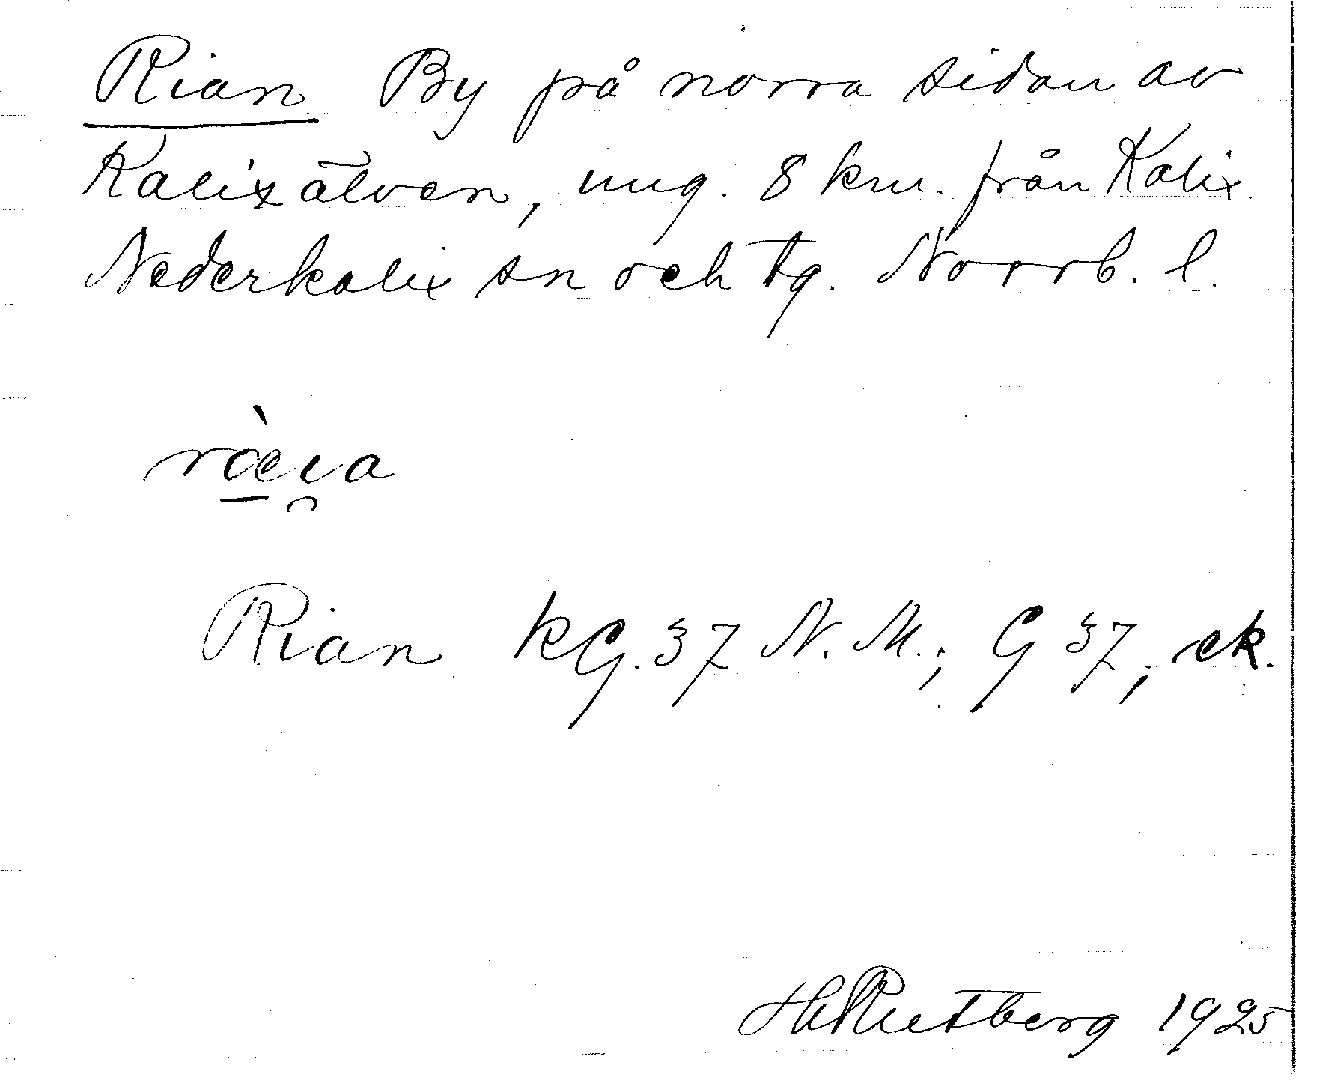 Rian By på norra sidan av
Kalixälven, ung. 8 km. från Kalix.
Nederkalix sn och tg. Norrb. l.
ræ̀ı̯a
Rian kG. 37 N. M.; G 37, ek.
H Rutberg 1925